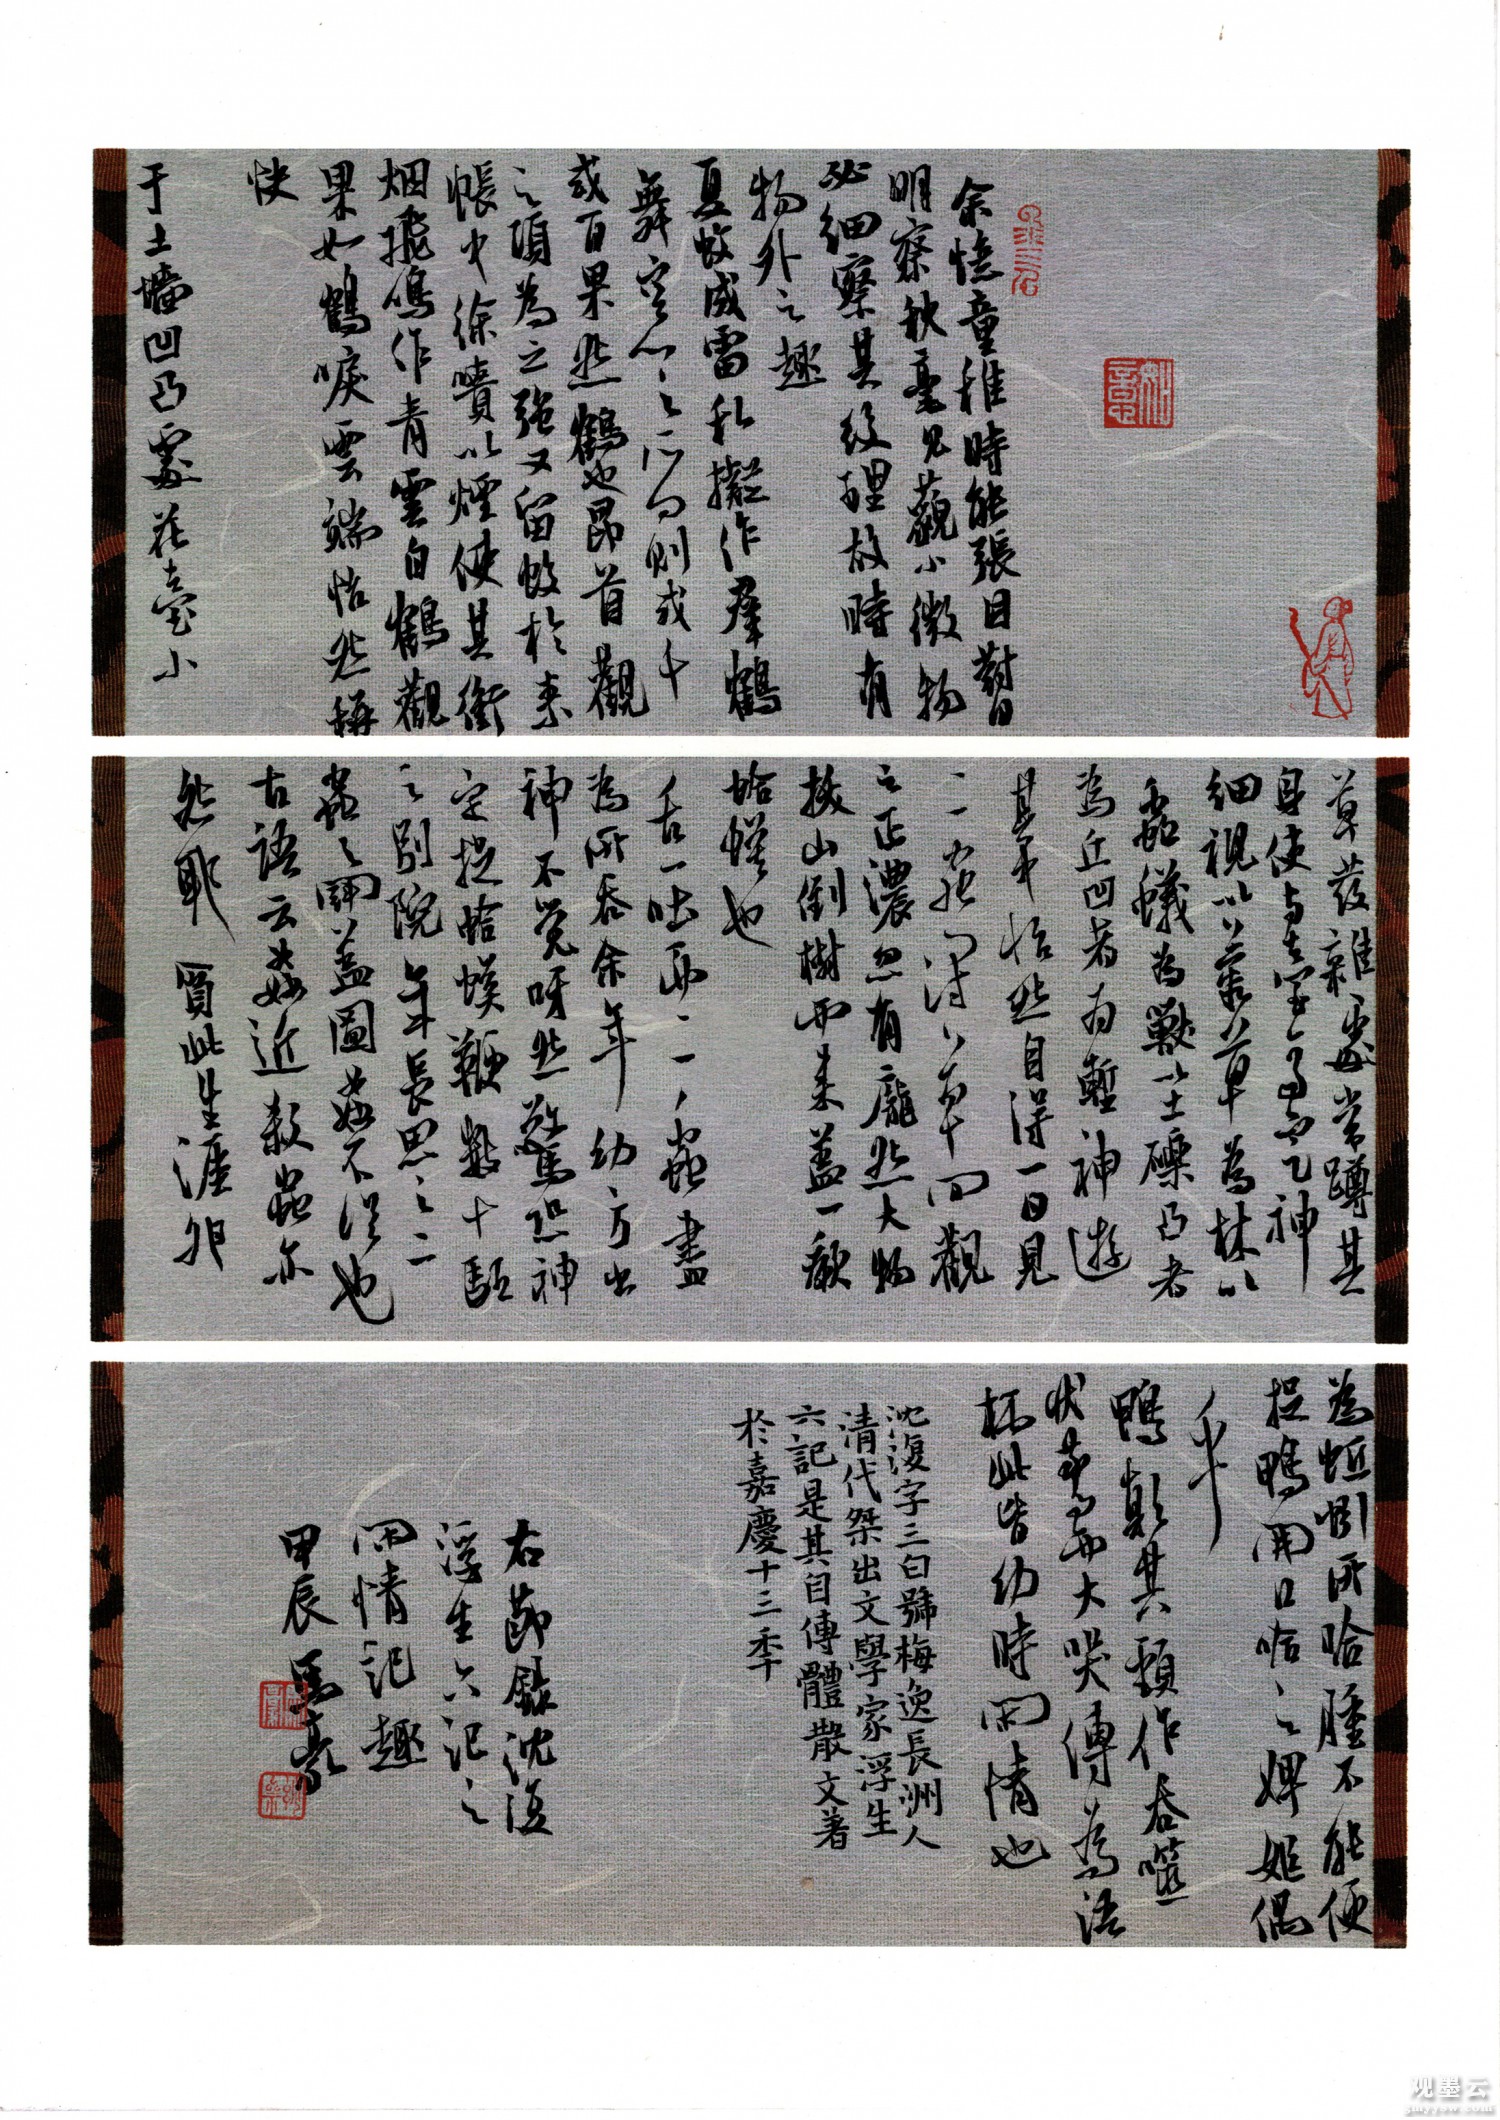 余憶童稚時能張目對日
明察秋毫見藐小微物
必細察其紋理故時有
物外之趣
夏蚊成雷私擬作羣鶴
舞空心之所向則或千
或百果然鶴也昂首觀
之項為之強又留蚊於素
帳中徐噴以煙使其衝
烟飛鳴作青雲白鶴觀
果如鶴唳雲端怡然稱
快
于土墻凹凸處花臺小
草叢雜處常蹲其
身使與臺齊定神
細視以叢草為林以
蟲蟻為獸以土礫凸者
為丘凹者為壑神遊
其中怡然自得一日見
二蟲鬥草間觀
之正濃忽有龐然大物
拔山倒樹而來蓋一癩
蛤蟆也
舌一吐而二蟲盡
為所吞余年幼方出
神不覺呀然驚恐神
定捉蛤蟆鞭數十驅
之別院年長思之二
蟲之鬥蓋圖姦不從也
古語云姦近殺蟲亦
然耶 貪此生涯卵
為蚯蚓所哈腫不能便
捉鴨開口哈之婢嫗偶
手
鴨顛其頸作吞噬
狀驚而大哭傳為語
柄此皆幼時閑情也
沈復字三白號梅逸長洲人
清代桀出文學家浮生
六記是其自傳體散文著
於嘉慶十三年
右節錄沈復
浮生六記之
閑情記趣
甲辰
观墨云